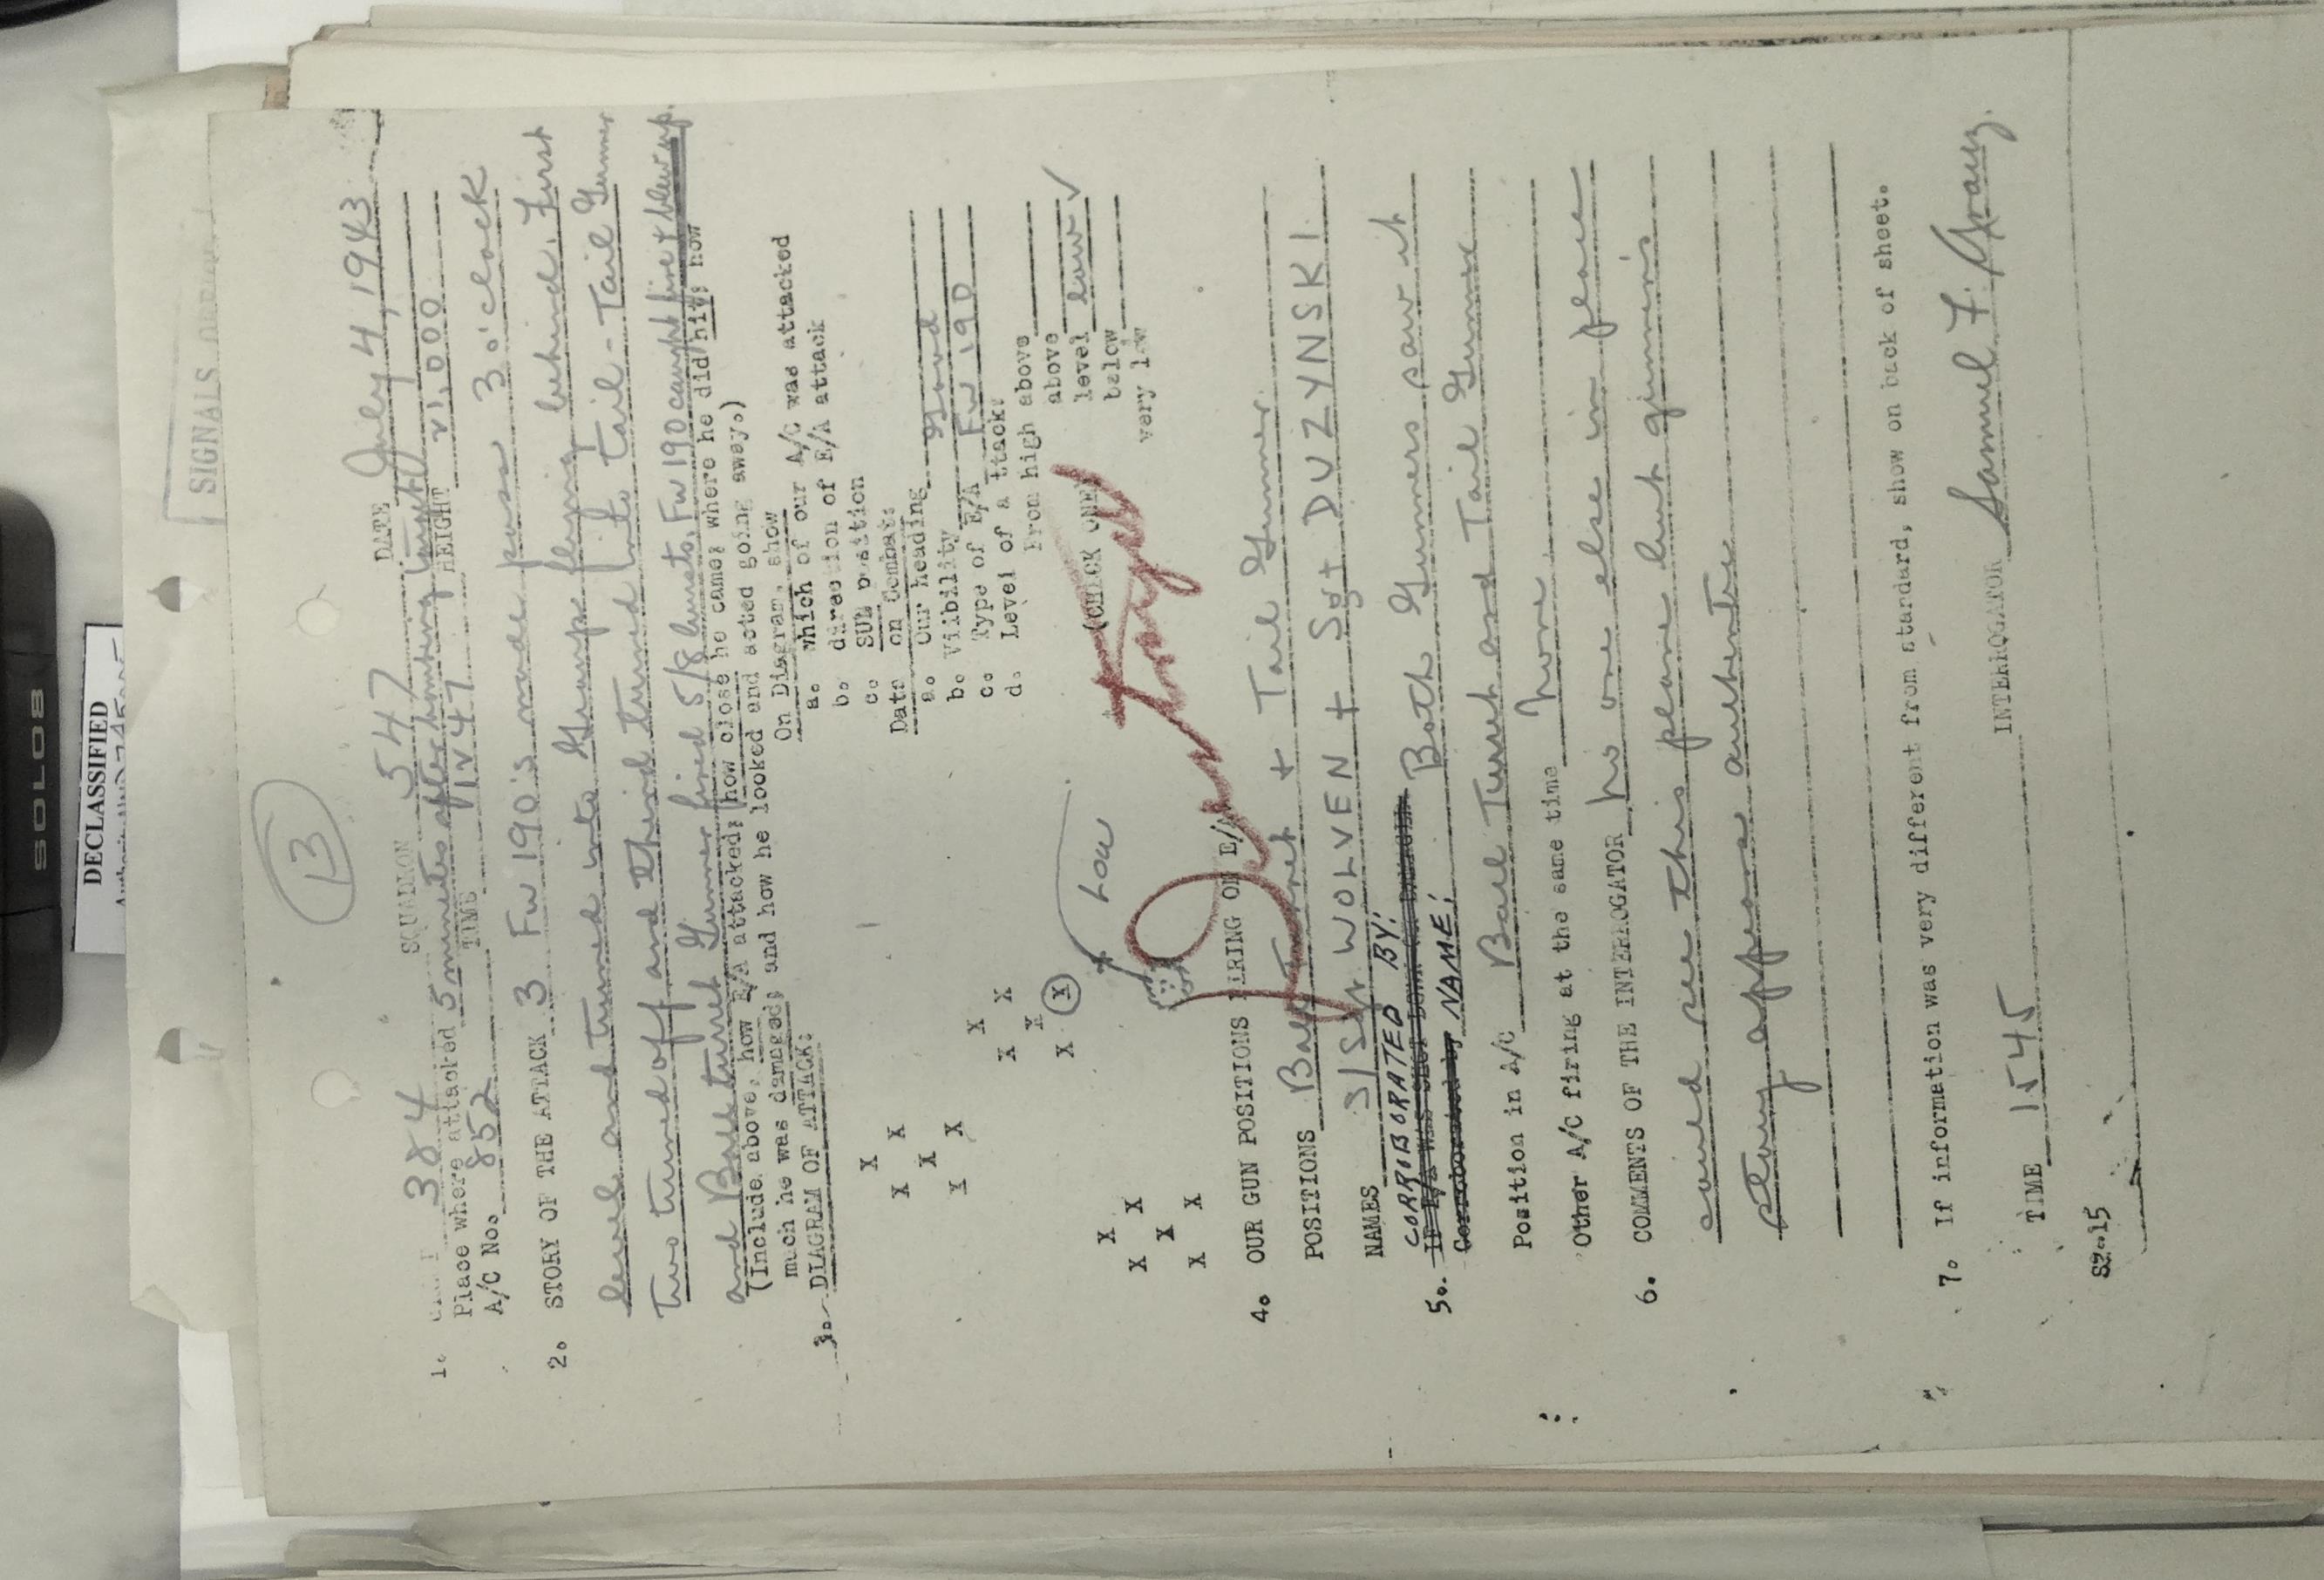 SOLO8
DECLASSIFIED
SIGNALS
13
1. 384 SQUADRON 547 DATE July 4, 1943
Place where attacked 5 minutes after bombing target
A/C No. 852 TIME 1247 HEIGHT 21,000
2. STORY OF THE ATTACK 3 Fw 190's made pass 3 o'clock
level and turned into Group flying behind. First
two turned off and third turned into tail - Tail Gunner
and Ball turret Gunner fired 5/8 bursts, Fw 190 caught fire & blew up.
(Include above, how E/A attacked; how close he came; where he did hit; how
much he was damaged; and how he looked and acted going away.)
3. DIAGRAM OF ATTACK:
On Diagram, show
a. which of our A/C was attacked
b. direction of E/A attack
c. SUN position
Data on Combat:
a. Our heading
b. Visibility good
c. Type of E/A Fw 190
d. Level of attack:
From high above
above
level low ✓
below
very low
(CHECK ONE)
X X X X X X
X X X X X X
X X X X X X
Low
Destroyed
4. OUR GUN POSITIONS FIRING ON E/A
POSITIONS Ball Turret + Tail Gunner
NAMES S/Sgt WOLVEN + Sgt DUZYNSKI
5. CORROBORATED BY: Both Gunners saw it
NAME:
Position in A/C Ball Turret and Tail Gunner
Other A/C firing at the same time None
6. COMMENTS OF THE INTERROGATOR No one else in plane
could see this plane but gunner's
story appears authentic
7. If information was very different from standard, show on back of sheet.
TIME 1545 INTERROGATOR Samuel F.
S2-15